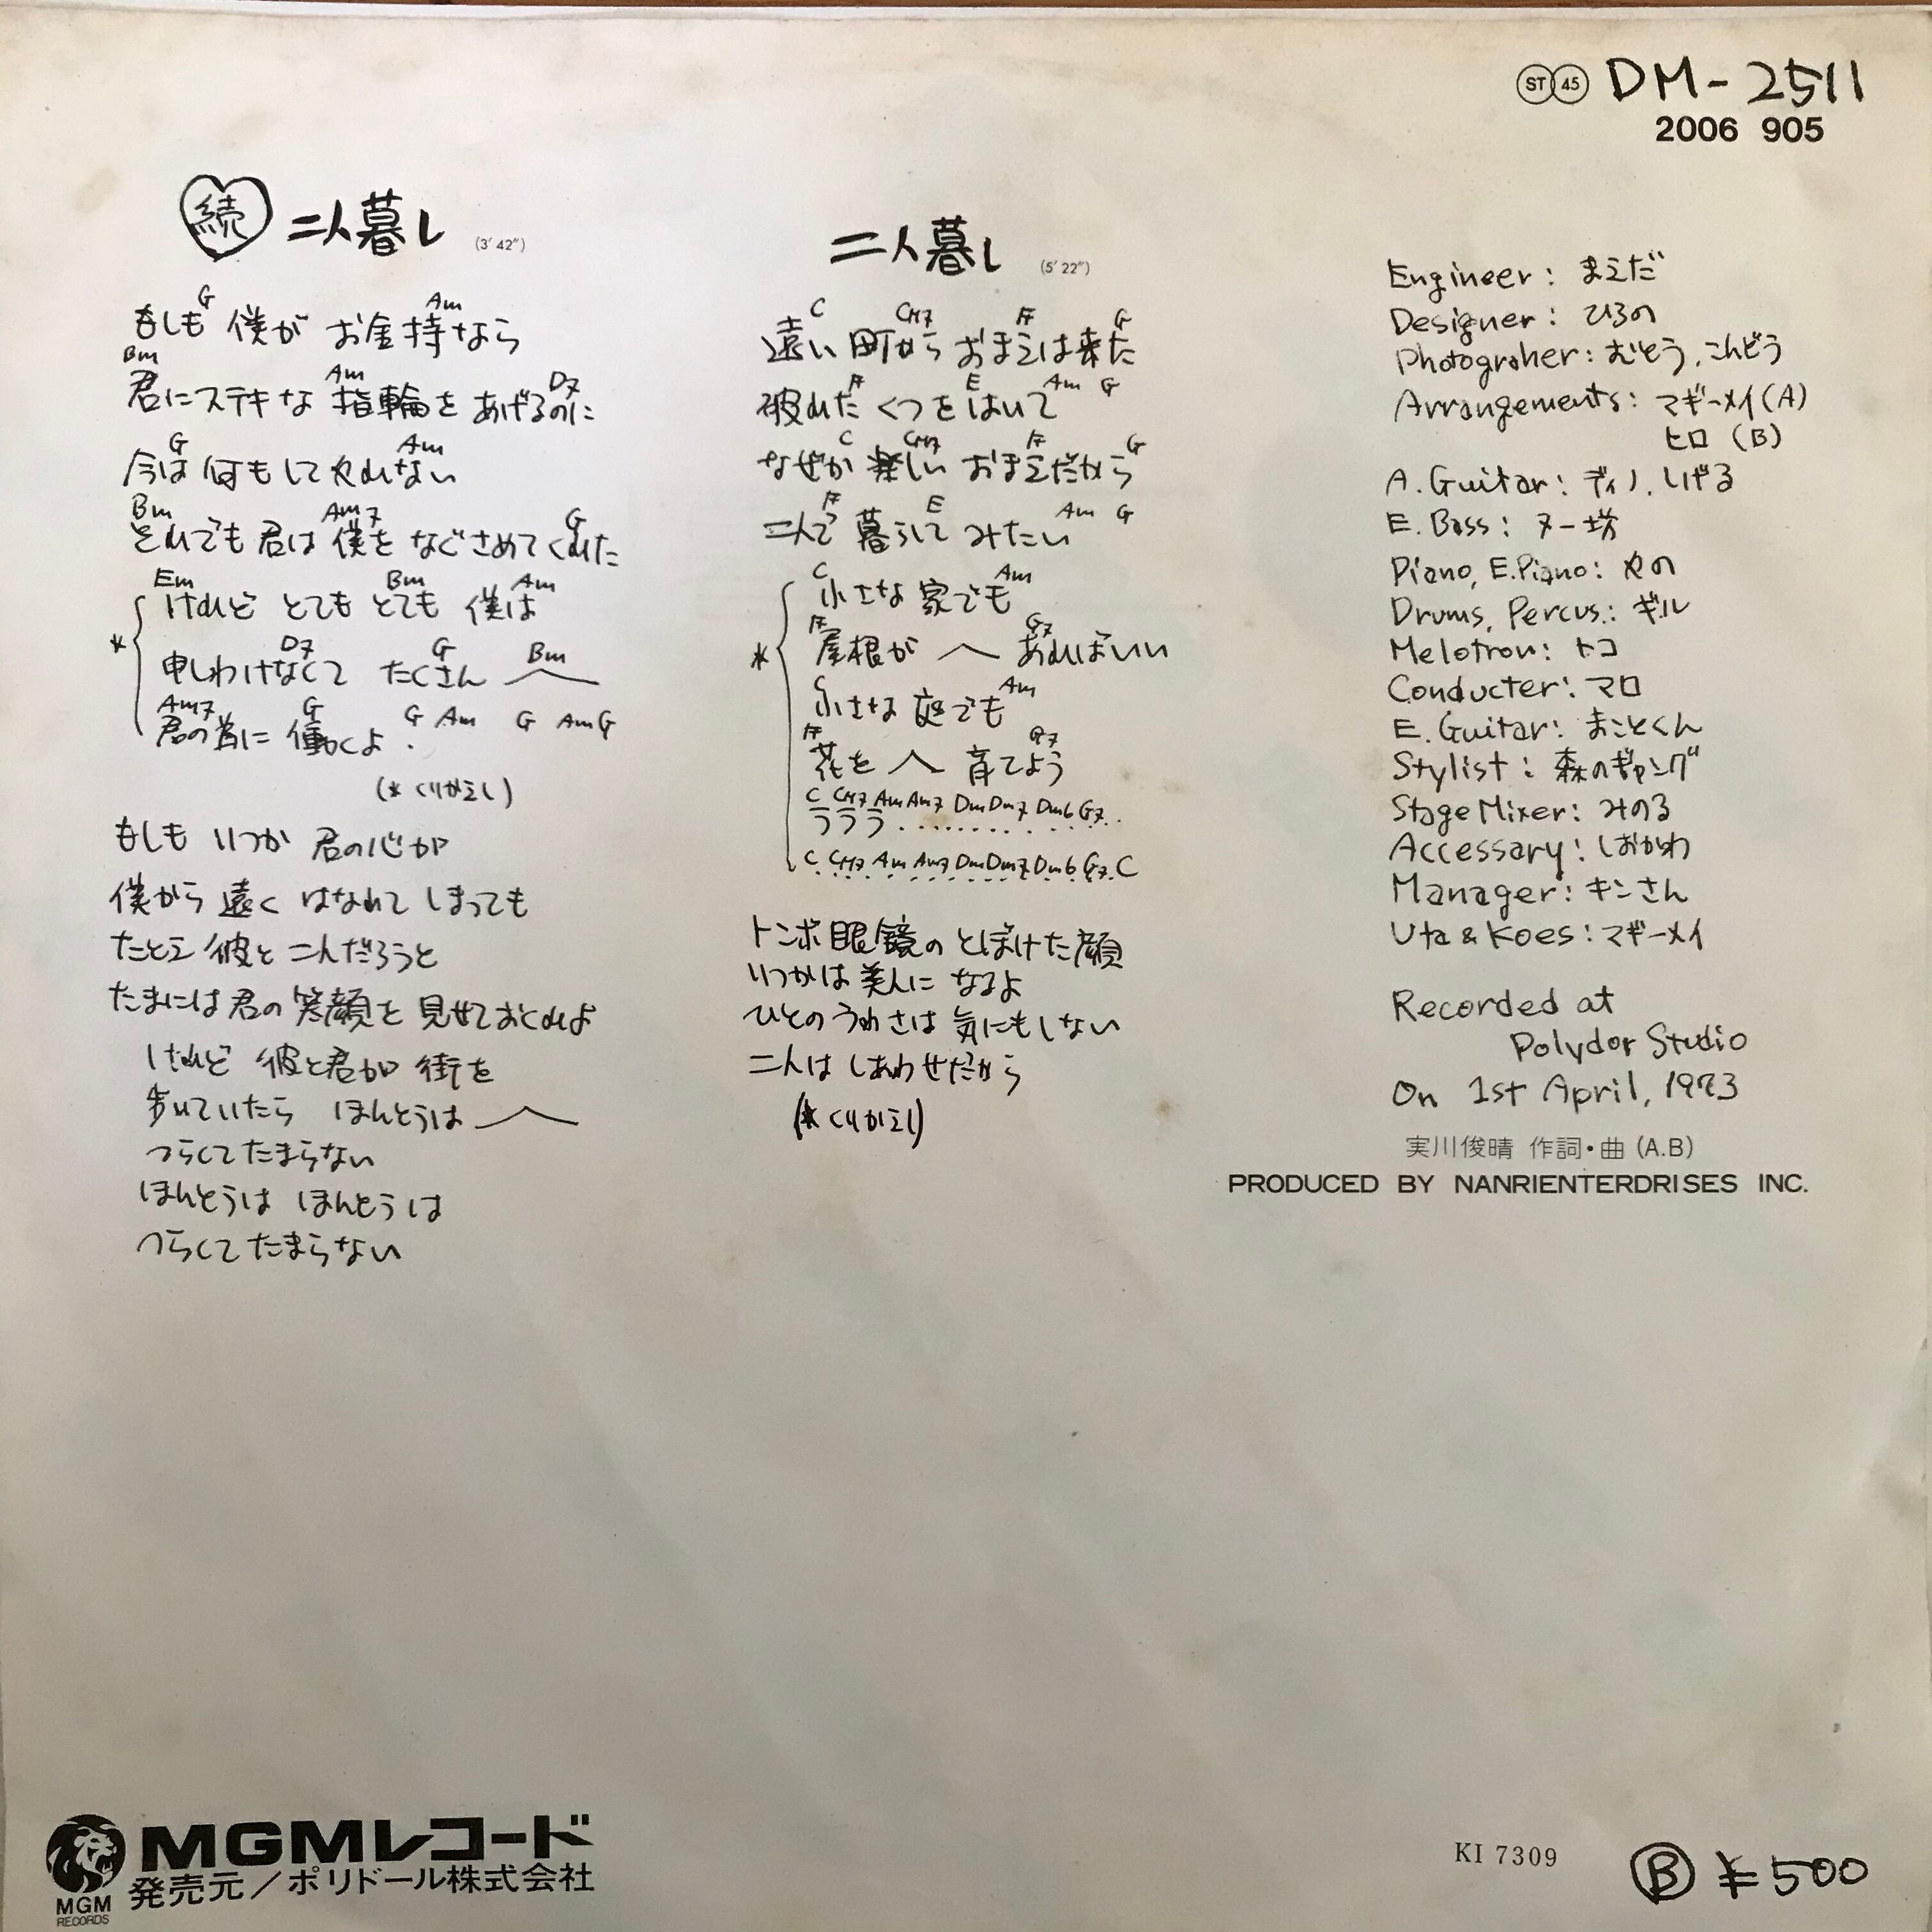 ST 45 DM-2511
2006 905
続 二人暮し (3' 42")
G Am
もしも 僕が お金持なら
Bm Am D7
君にステキな 指輪を あげるのに
G Am
今は 何もしてやれない
Bm Am7 G
それでも 君は 僕を なぐさめてくれた
Em Bm Am
けれど とても とても 僕は
* D7 G Bm
申しわけなくて たくさん
Am7 G G Am G Am G
君の為に 働くよ.
(* くりかえし)
もしも いつか 君の心が
僕から 遠く はなれて しまっても
たとえ 彼と 二人だろうと
たまには 君の 笑顔を 見せておくれよ
けれど 彼と君が 街を
歩いていたら ほんとうは
つらくて たまらない
ほんとうは ほんとうは
つらくて たまらない
二人暮し (5' 22")
C CM7 F G
遠い 町から おまえは来た
F E Am G
破れた くつを はいて
C CM7 F G
なぜか 楽しい おまえだから
F E Am G
二人で 暮らして みたい
C Am
小さな 家でも
F G7
* 屋根が あればいい
C Am
小さな 庭でも
F G7
花を 育てよう
C CM7 Am Am7 Dm Dm7 Dm6 G7..
ラララ...........
C CM7 Am Am7 Dm Dm7 Dm6 G7 C
トンボ眼鏡の とぼけた顔
いつかは 美人に なるよ
ひとの うわさは 気にもしない
二人は しあわせだから
(* くりかえし)
Engineer: まえだ
Designer: ひろの
Photograher: むとう, こんどう
Arrangements: マギーメイ(A)
ヒロ (B)
A. Guitar: ディノ, しげる
E. Bass: ヌー坊
Piano, E.Piano: やの
Drums, Percus.: ギル
Melotron: トコ
Conducter: マロ
E. Guitar: まことくん
Stylist: 森のギャング
Stage Mixer: みのる
Accessary: しおかわ
Manager: キンさん
Uta & Koes: マギーメイ
Recorded at
Polydor Studio
On 1st April, 1973
実川俊晴 作詞・曲 (A.B)
PRODUCED BY NANRIENTERDRISES INC.
MGMレコード
発売元／ポリドール株式会社
MGM
RECORDS
KI 7309
B ¥500